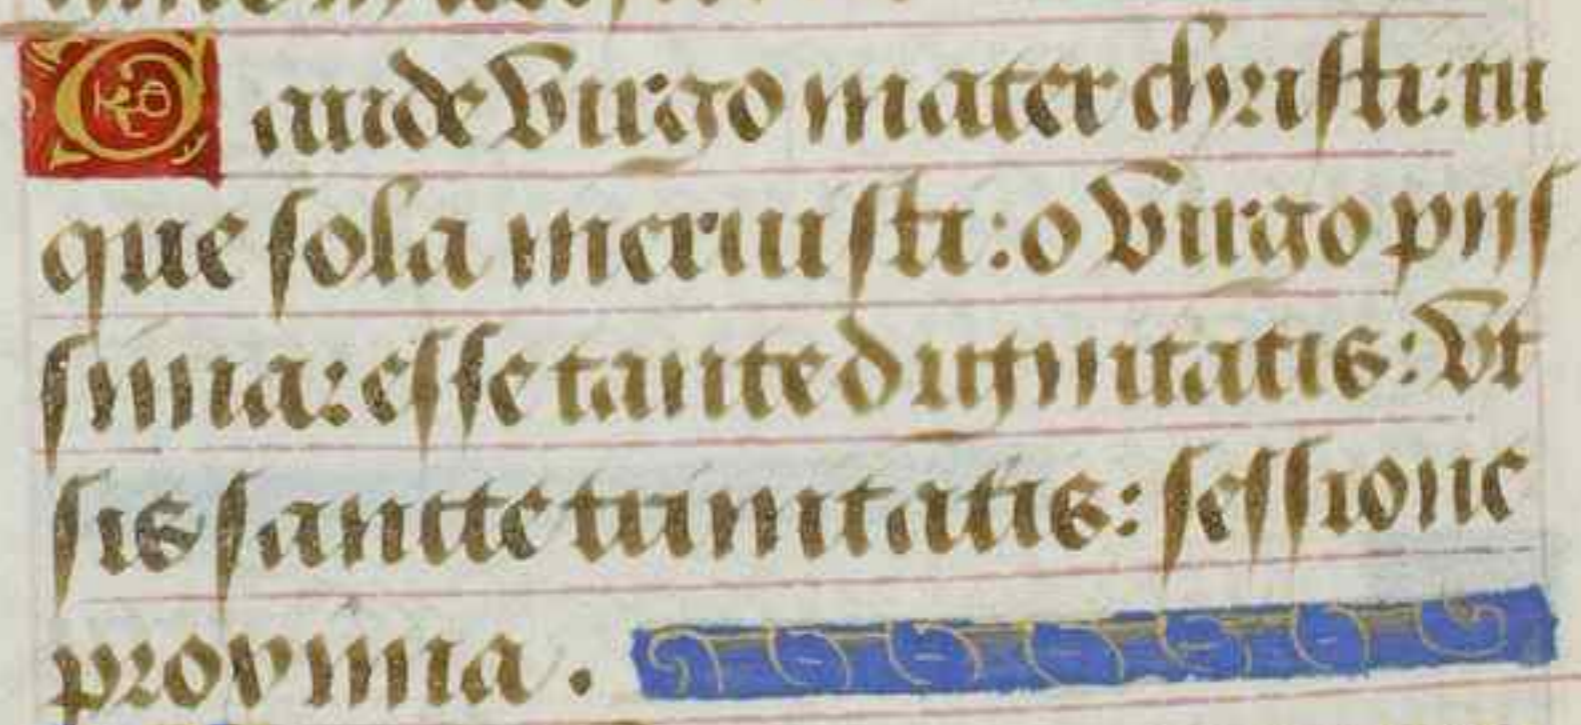 Gaude virgo mater christi: tu
que sola meruisti: o virgo pijs
sima: esse tante dignitatis: vt
sis sancte trinitatis: sessione
proxima.